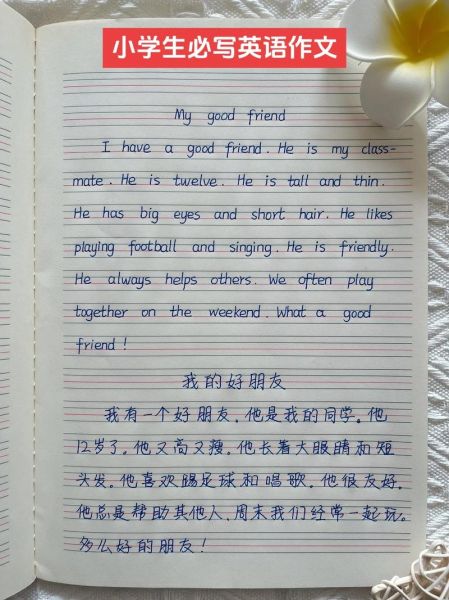 小学生必写英语作文
My good friend
I have a good friend. He is my class-
mate. He is twelve. He is tall and thin.
He has big eyes and short hair. He likes
playing football and singing. He is friendly.
He always helps others. We often play
together on the weekend. What a good
friend!
我的好朋友
我有一个好朋友，他是我的同学。他
12岁了。他又高又瘦。他长着大眼睛和短
头发。他喜欢踢足球和唱歌。他很友好。
他总是帮助其他人、周末我们经常一起玩。
多么好的朋友！